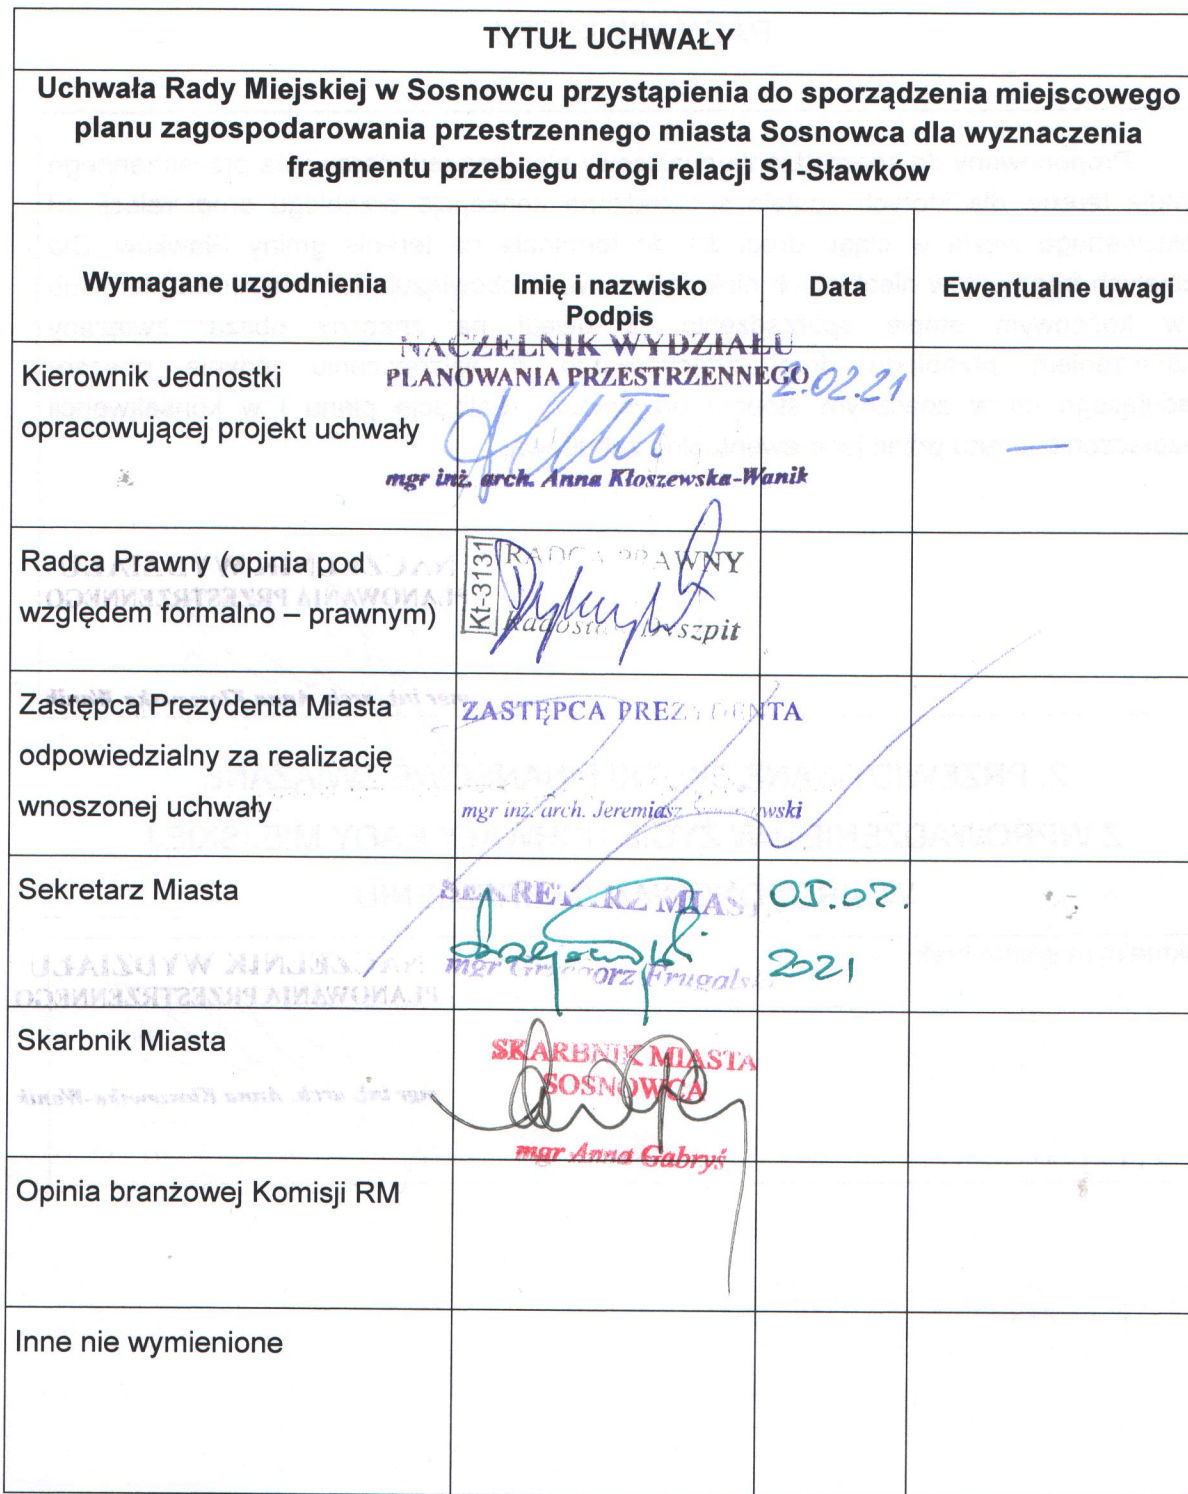 TYTUŁ UCHWAŁY
Uchwała Rady Miejskiej w Sosnowcu przystąpienia do sporządzenia miejscowego
planu zagospodarowania przestrzennego miasta Sosnowca dla wyznaczenia
fragmentu przebiegu drogi relacji S1-Sławków
Wymagane uzgodnienia
Imię i nazwisko
Podpis
Data
Ewentualne uwagi
Kierownik Jednostki
opracowującej projekt uchwały
NACZELNIK WYDZIAŁU
PLANOWANIA PRZESTRZENNEGO
mgr inż. arch. Anna Kłoszewska-Wanik
2.02.21
—
Radca Prawny (opinia pod
względem formalno – prawnym)
Kt-3131
RADCA PRAWNY
Dyszpit
Zastępca Prezydenta Miasta
odpowiedzialny za realizację
wnoszonej uchwały
ZASTĘPCA PREZYDENTA
mgr inż. arch. Jeremiasz
Sekretarz Miasta
SEKRETARZ MIASTA
mgr Grzegorz Frugalski
05.02.
2021
Skarbnik Miasta
SKARBNIK MIASTA
SOSNOWCA
mgr Anna Gabryś
Opinia branżowej Komisji RM
Inne nie wymienione